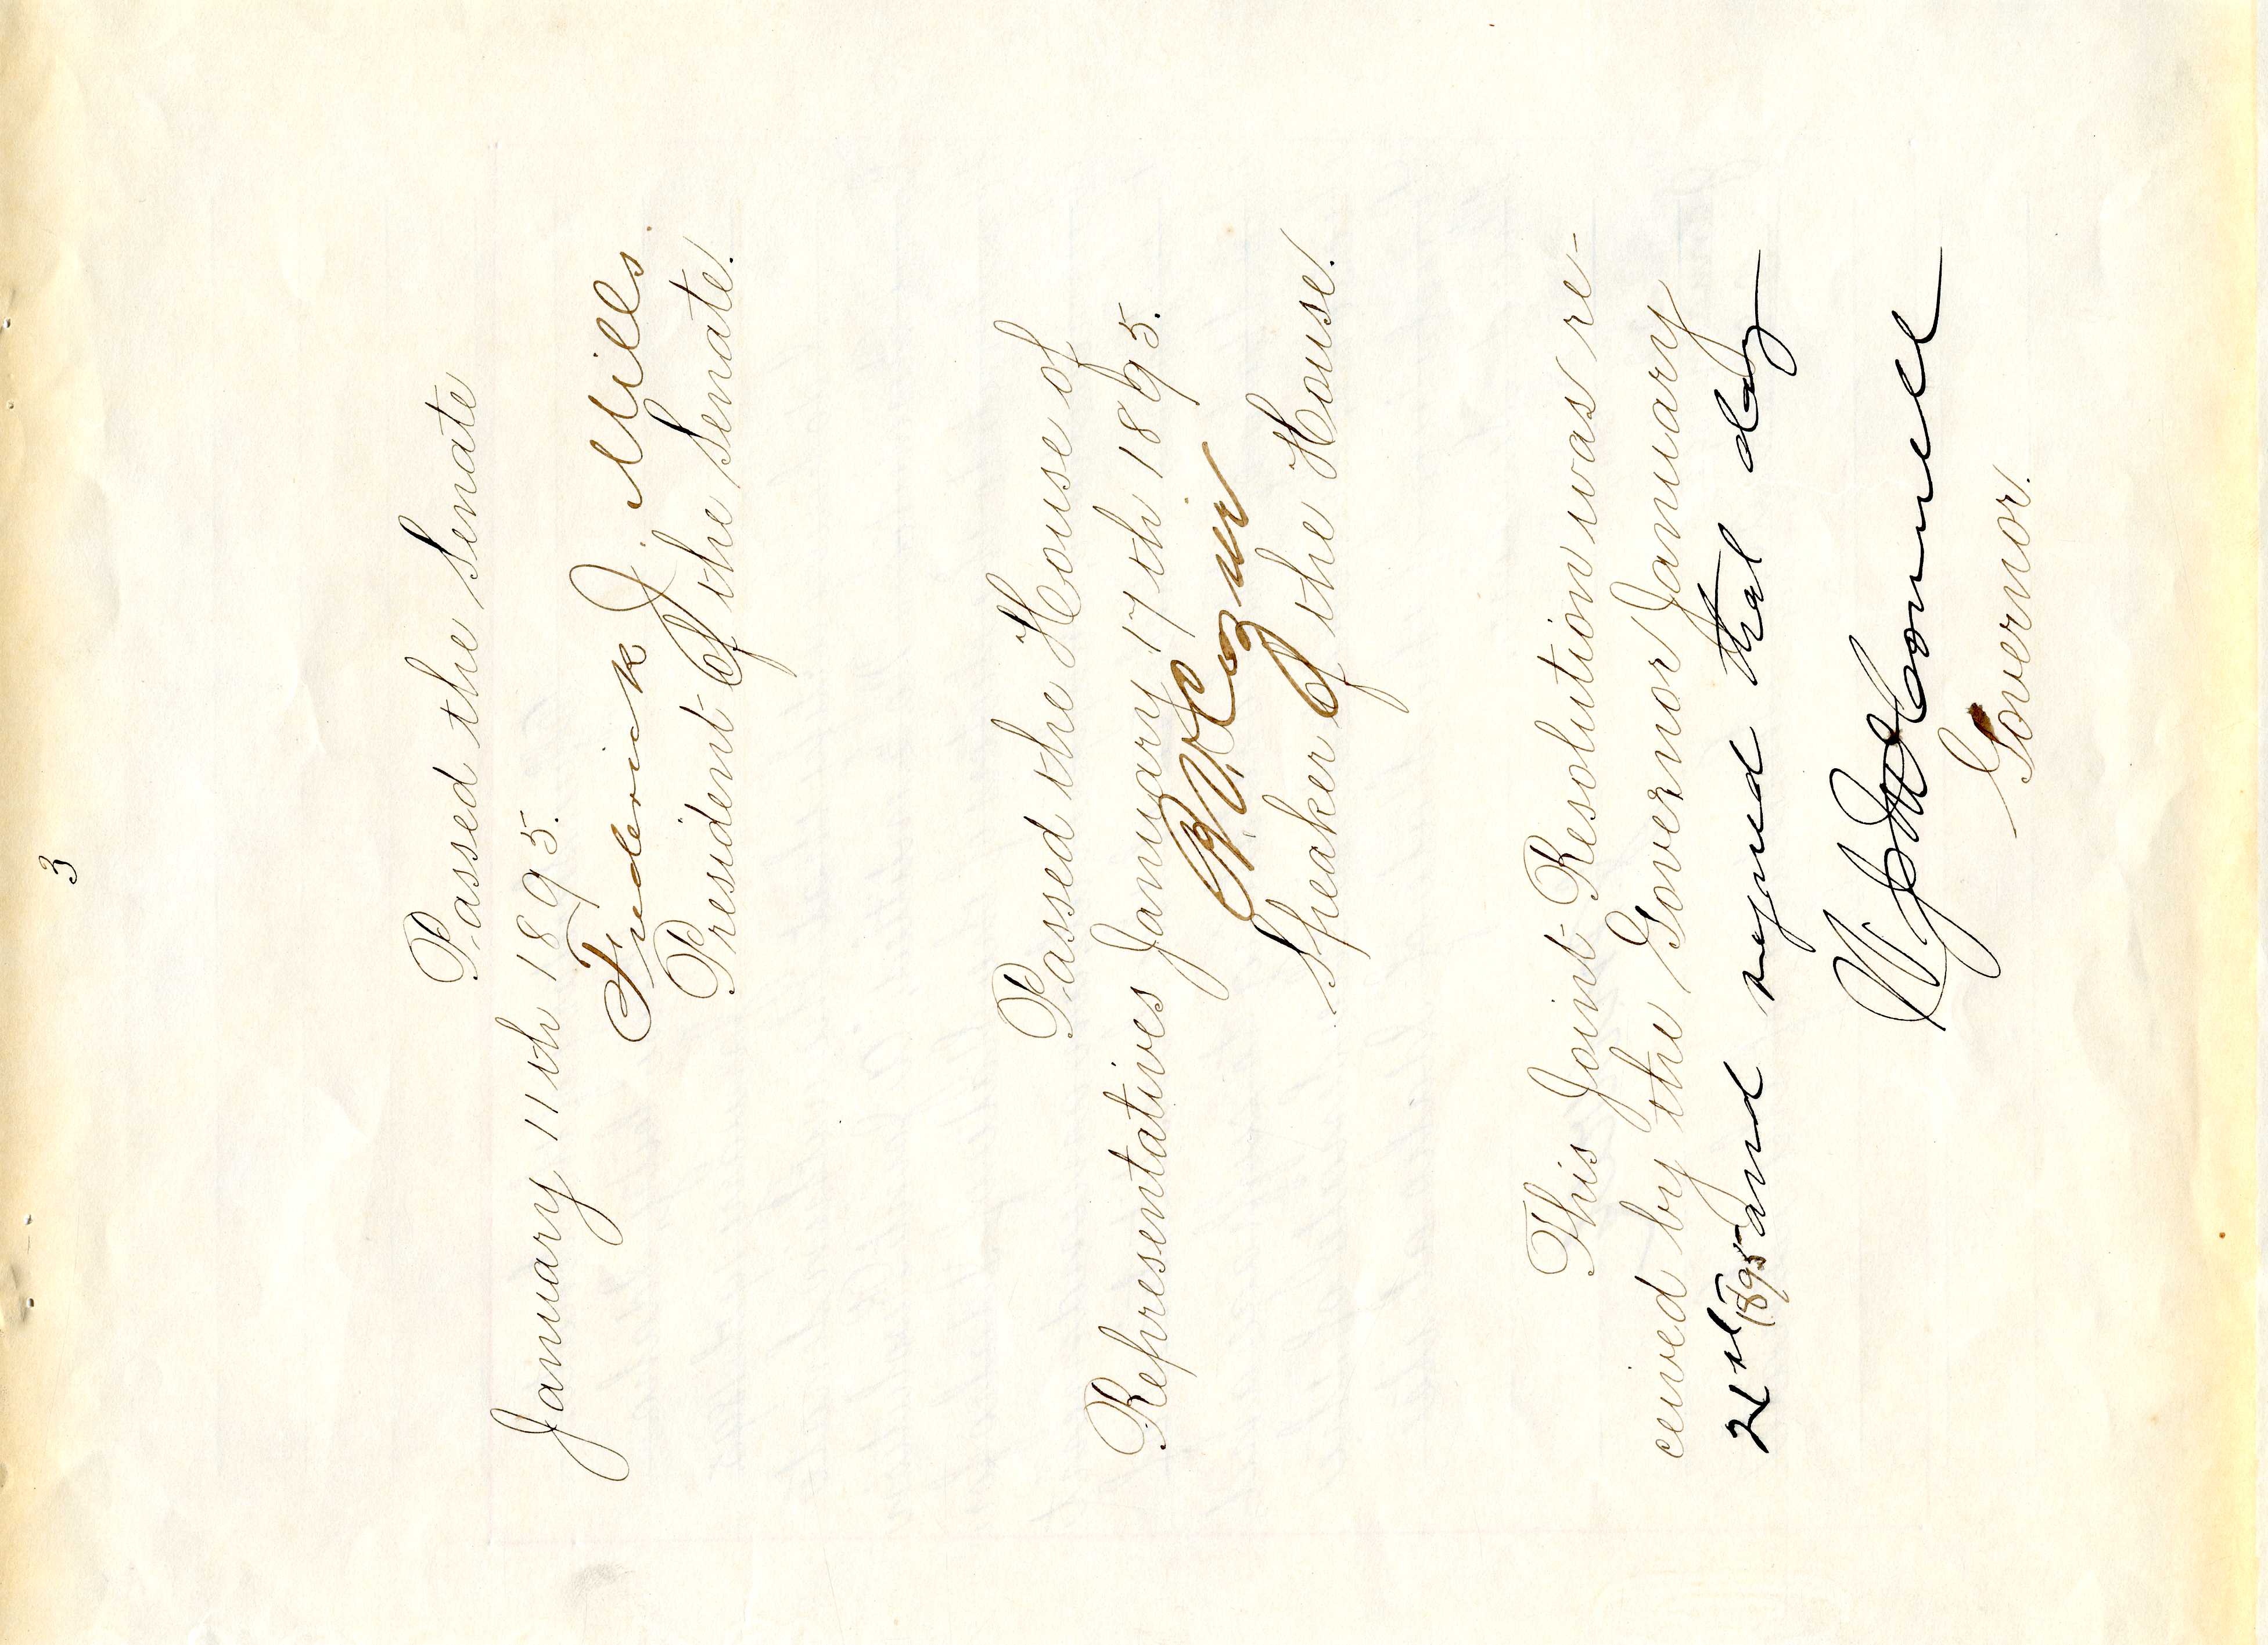 3
Passed the Senate
January 11th 1895.
Frederick J. Mills.
President of the Senate.
Passed the House of
Representatives January 17th 1895.
R.V. Cozier
Speaker of the House.
This Joint Resolution was re-
ceived by the Governor January
21st 1895 and signed that day
W J McConnell
Governor.